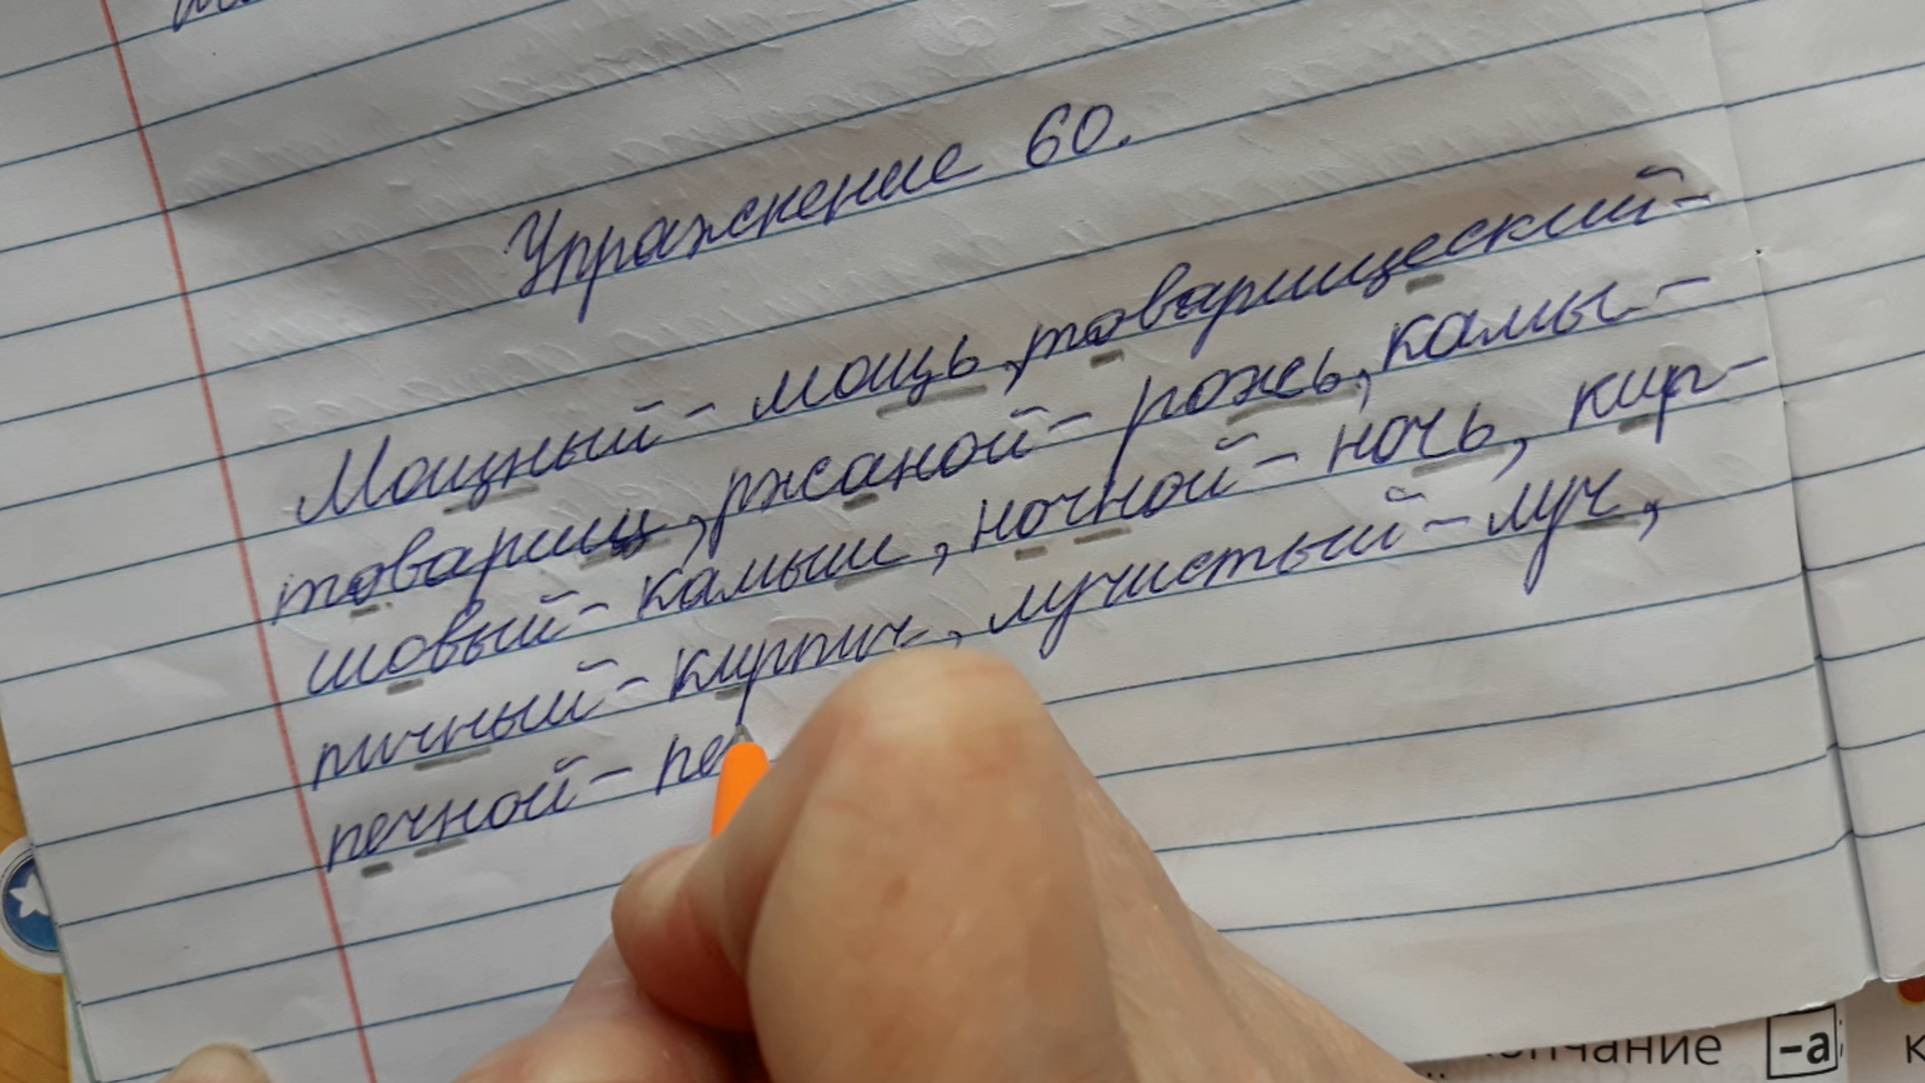 Упражнение 60.
Мощный - мощь, товарищеский -
товарищ, ржаной - рожь, камы-
шовый - камыш, ночной - ночь, кир-
пичный - кирпич, лучистый - луч,
печной - пе
-а